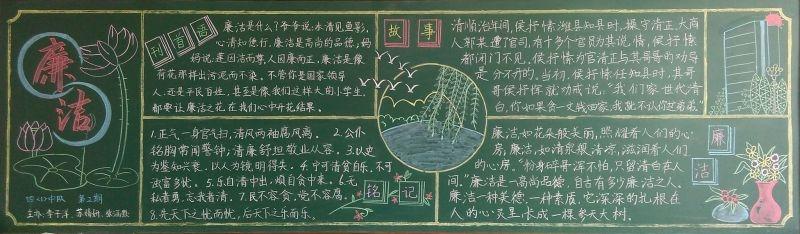 廉洁
四(1)中队 第2期
主办:李子洋、苏婧妍、张涵懿
刊首语
廉洁是什么?爷爷说:水清见鱼影,
心清知德行,廉洁是高尚的品德;妈
妈说:莲因洁而尊,人因廉而正,廉洁是像
荷花那样出污泥而不染,不管你是国家领导
人,还是平民百姓,甚至是像我们这样大的小学生,
都要让廉洁之花在我们心中开花结果。
1.正气一身官气扫,清风两袖腐风离。2.公仆
铭胸常闻警钟;清廉舒坦敬业从容。3.以史
为鉴知兴衰,以人为镜明得失。4.宁可清贫自乐,不可
浊富多忧。5.乐自清中出,烦自贪中来。6.无
私者勇,忘我者清。7.良不容贪,诡不容腐。
8.先天下之忧而忧,后天下之乐而乐。
铭记
故事
清顺治年间,侯抒愫潍县知县时,操守清正,大商
人郭某遭了官司,有许多个官员为其说情,侯抒愫
都闭门不见。侯抒愫为官清正与其哥哥的劝导
是分不开的。当初,侯抒愫任知县时,其哥
哥侯抒愫就劝戒说:"我们家世代清
白,你如果贪一文钱回家,我就不认你这弟弟。
廉洁如花朵般美丽,照耀着人们的心
房;廉洁,如清泉般清凉,滋润着人们
的心房。"粉身碎骨浑不怕,只留清白在人
间。"廉洁是一高尚品德,自古有多少廉洁之人。
廉洁一种美德,一种素质,它深深的扎根在
人的心灵里,长成一棵参天大树。
廉洁